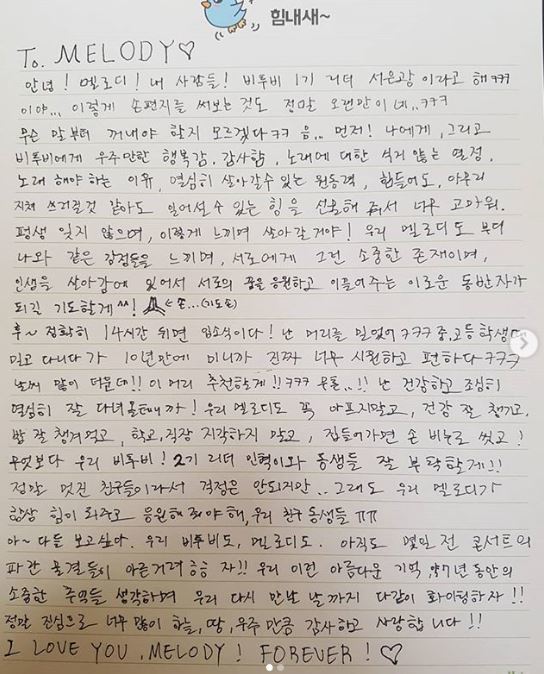 힘내새~
To. MELODY♡
안녕! 멜로디! 내 사람들! 비투비 1기 리더 서은광이라고 해ㅋㅋㅋ
이야... 이렇게 손편지를 써보는 것도 정말 오랜만이네..ㅋㅋㅋ
무슨 말부터 꺼내야 할지 모르겠다ㅋㅋ 음.. 먼저! 나에게, 그리고
비투비에게 우주만한 행복감, 감사함, 노래에 대한 식지 않는 열정,
노래 해야 하는 이유, 열심히 살아갈수 있는 원동력, 힘들어도, 아무리
지쳐 쓰러질것 같아도 일어설수 있는 힘을 선물해 줘서 너무 고마워.
평생 잊지 않으며, 이렇게 느끼며 살아갈게야! 우리 멜로디도 부디
나와 같은 감정들을 느끼며, 서로에게 그런 소중한 존재이며,
인생을 살아감에 있어서 서로의 꿈을 응원하고 이끌어주는 이로운 동반자가
되길 기도할게 ^^! 손...(기도손)
후~ 정확히 14시간 뒤면 입소식이다! 난 머리를 밀었어ㅋㅋㅋ 중,고등학생때
밀고 다니다가 10년만에 미니까 진짜 너무 시원하고 편하다ㅋㅋㅋ
날씨 많이 더운데!! 이 머리 추천할게!!ㅋㅋㅋ 무튼..!! 난 건강하고 조심히
열심히 잘 다녀올테니까! 우리 멜로디도 꼭 아프지말고, 건강 잘 챙기고,
밥 잘 챙겨먹고, 학교,직장 지각하지 말고, 집들어가면 손 비누로 씻고!
무엇보다 우리 비투비! 2기 리더 민혁이와 동생들 잘 부탁할게!!
정말 멋진 친구들이라서 걱정은 안되지만.. 그래도 우리 멜로디가
항상 힘이 되주고 응원해줘야해, 우리 친구 동생들 ㅠㅠ
아~ 다들 보고싶다. 우리 비투비도, 멜로디도. 아직도 몇일 전 콘서트의
파란 물결들이 아른거려 흐흐 자!! 우리 이런 아름다운 기억, 약7년 동안의
소중한 추억들 생각하며 우리 다시 만날 날까지 다같이 화이팅하자!!
정말 진심으로 너무 많이 하늘, 땅, 우주 만큼 감사하고 사랑합니다!!
I LOVE YOU, MELODY! FOREVER!♡